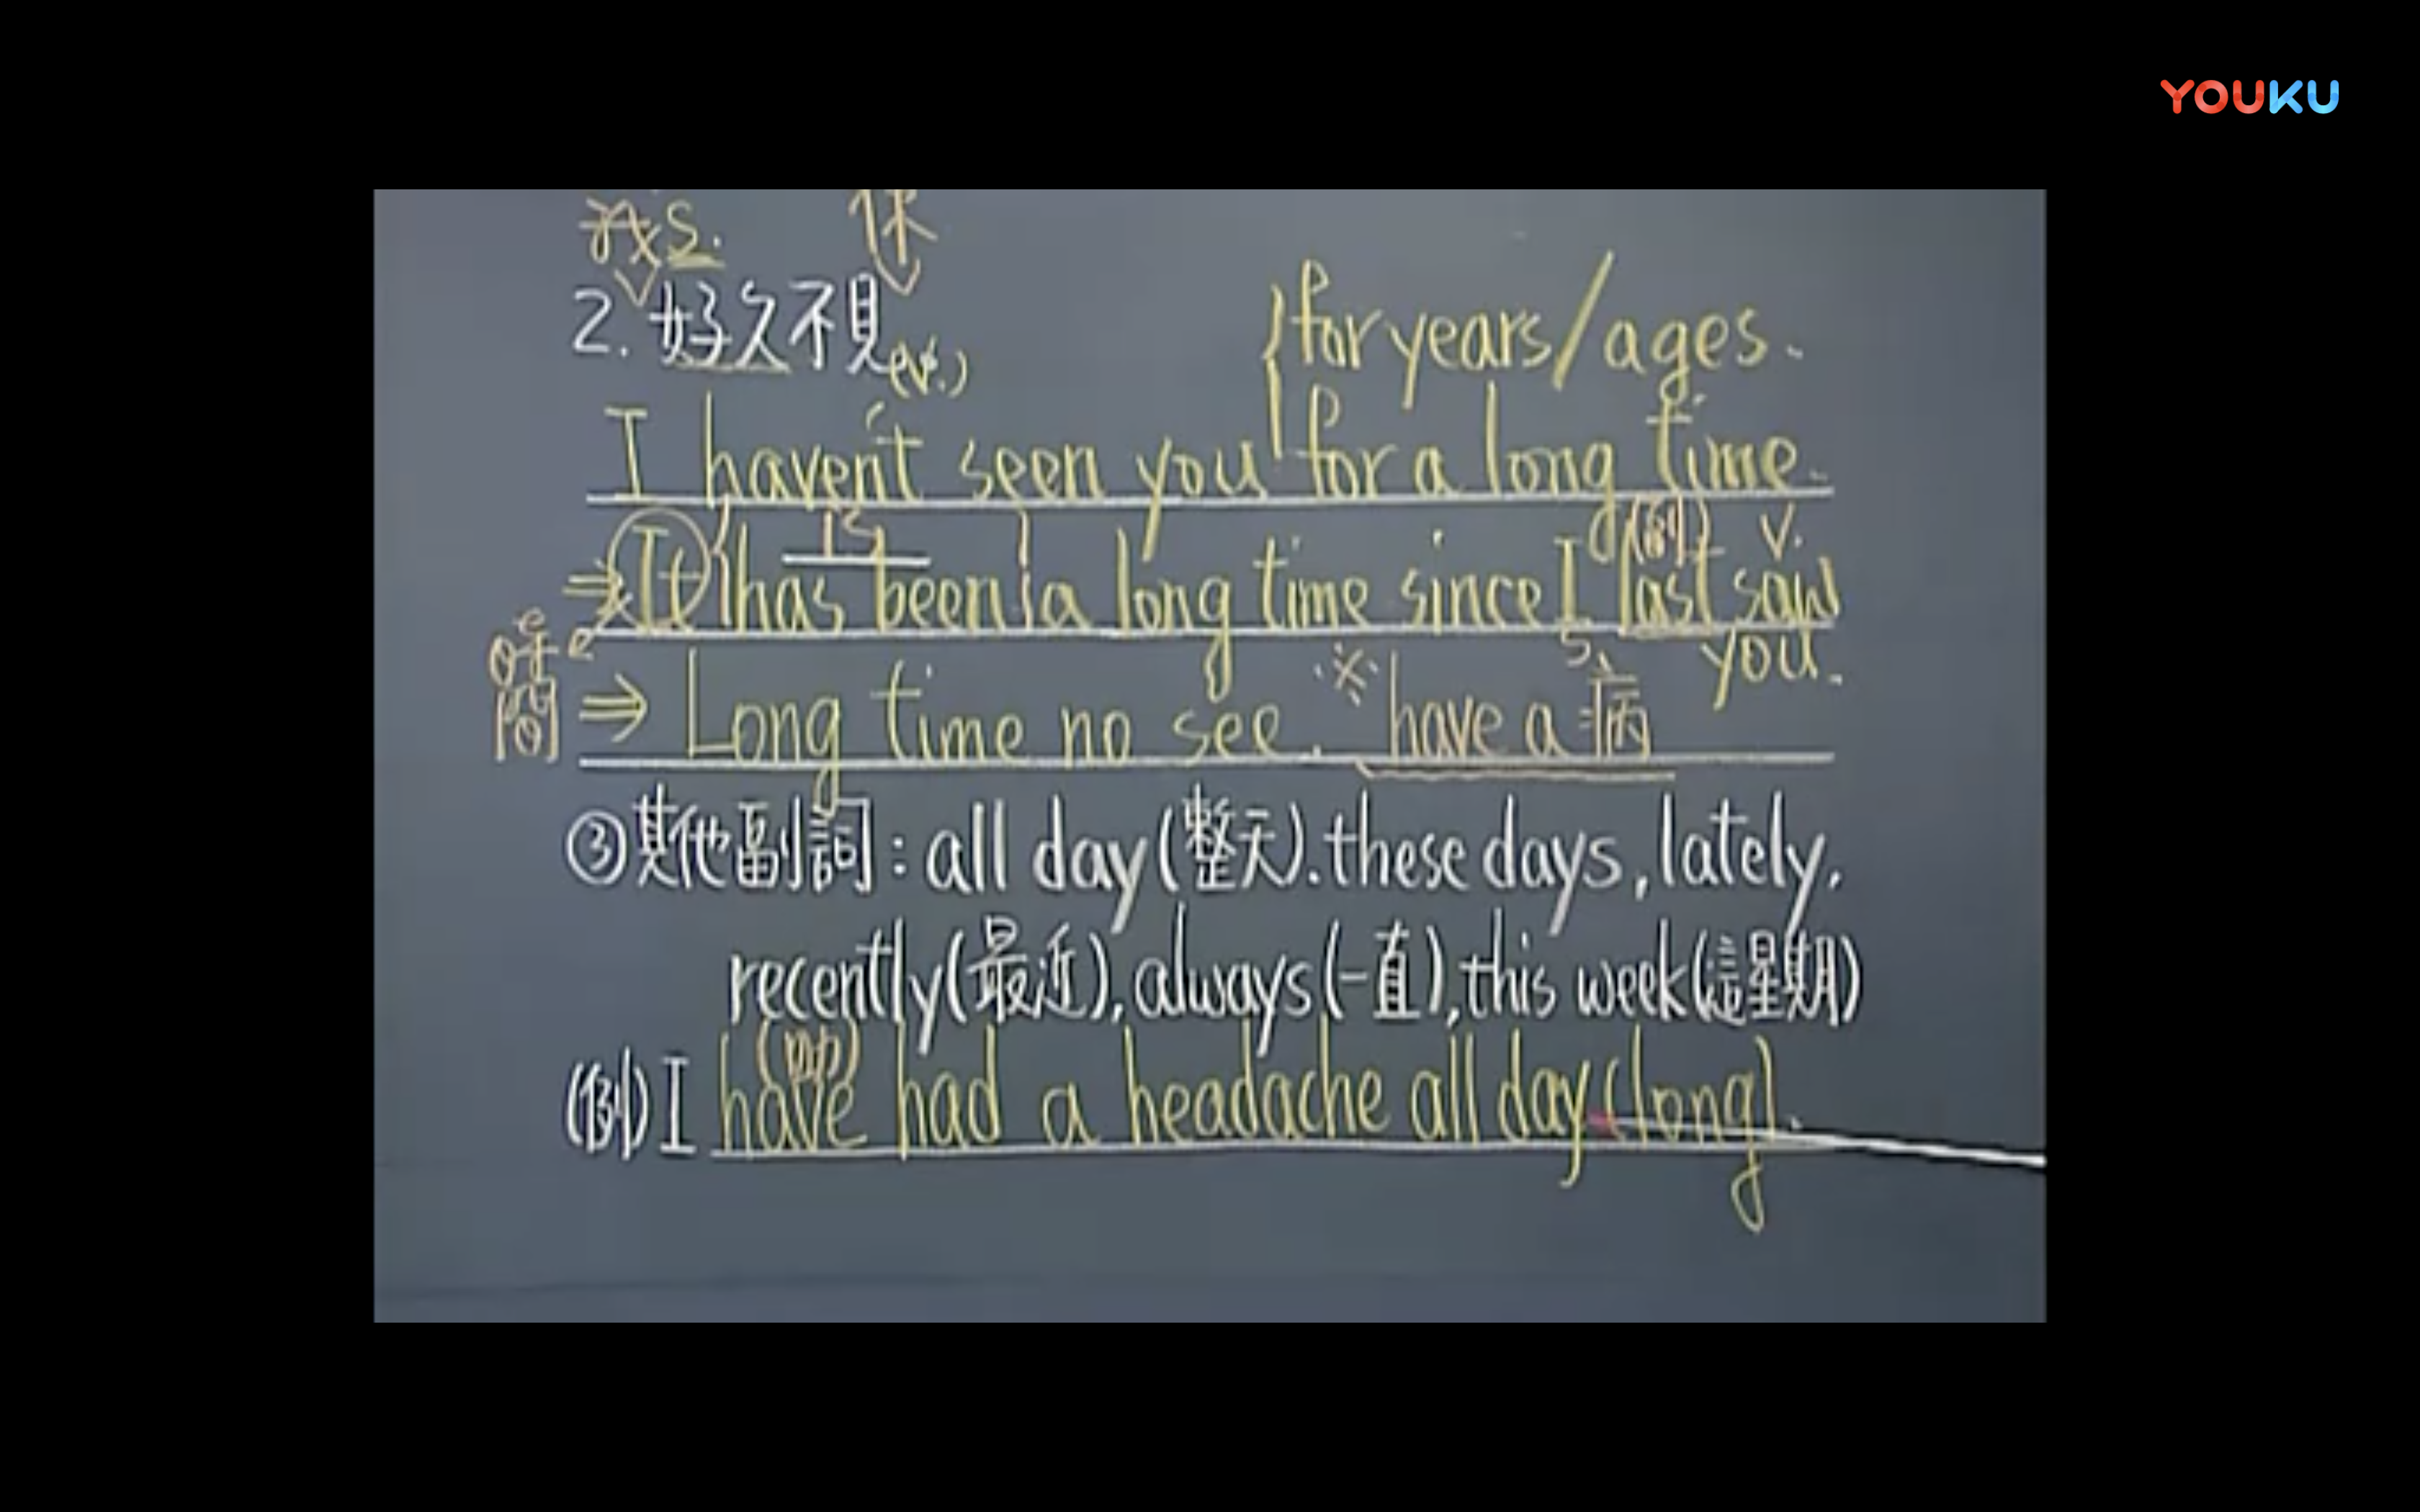 YOUKU
我 S. 你
2. 好久不見 (v.)
for years/ages.
I haven't seen you for a long time.
is (副) v.
⇒ It has been a long time since I last saw
you.
時間 S
⇒ Long time no see. ※ have a 病
③其他副詞: all day (整天). these days, lately,
recently (最近), always (一直), this week (這星期)
(助)
(例) I have had a headache all day (long).